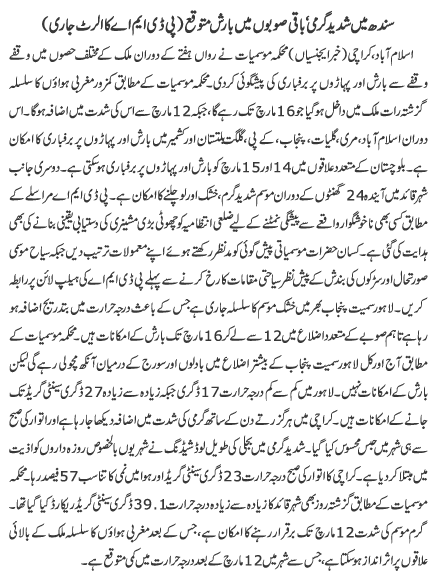 سندھ میں شدید گرمی‘ باقی صوبوں میں بارش متوقع (پی ڈی ایم اے کا الرٹ جاری)
اسلام آباد، کراچی (خبر ایجنسیاں) محکمہ موسمیات نے رواں ہفتے کے دوران ملک کے مختلف حصوں میں وقفے
وقفے سے بارش اور پہاڑوں پر برفباری کی پیشگوئی کردی۔ محکمہ موسمیات کے مطابق کمزور مغربی ہواؤں کا سلسلہ
گزشتہ رات ملک میں داخل ہو گیا جو 16 مارچ تک رہے گا، جبکہ 12 مارچ سے اس کی شدت میں اضافہ ہوگا۔ اس
دوران اسلام آباد، مری، گلیات، پنجاب، کے پی، گلگت بلتستان اور کشمیر میں بارش اور پہاڑوں پر برفباری کا امکان
ہے۔ بلوچستان کے متعدد علاقوں میں 14 اور 15 مارچ کو بارش اور پہاڑوں پر برفباری ہوسکتی ہے۔ دوسری جانب
شہر قائد میں آیندہ 24 گھنٹوں کے دوران موسم شدید گرم، خشک اور لو چلنے کا امکان ہے۔ پی ڈی ایم اے مراسلے کے
مطابق کسی بھی ناخوشگوار واقعے سے پیشگی نمٹنے کے لیے ضلعی انتظامیہ کو چھوٹی بڑی مشینری کی دستیابی یقینی بنانے کی بھی
ہدایت کی گئی ہے۔ کسان حضرات موسمیاتی پیش گوئی کو مدنظر رکھتے ہوئے اپنے معمولات ترتیب دیں جبکہ سیاح موسمی
صورتحال اور سڑکوں کی بندش کے پیش نظر سیاحتی مقامات کا رخ کرنے سے پہلے پی ڈی ایم اے کی ہیلپ لائن پر رابطہ
کریں۔ لاہور سمیت پنجاب بھر میں خشک موسم کا سلسلہ جاری ہے جس کے باعث درجہ حرارت میں بتدریج اضافہ ہو
رہا ہے تاہم صوبے کے متعدد اضلاع میں 12 سے لے کر 16 مارچ تک بارش کے امکانات ہیں۔ محکمہ موسمیات کے
مطابق آج اور کل لاہور سمیت پنجاب کے بیشتر اضلاع میں بادلوں اور سورج کے درمیان آنکھ مچولی رہے گی لیکن
بارش کے امکانات نہیں۔ لاہور میں کم سے کم درجہ حرارت 17 ڈگری جبکہ زیادہ سے زیادہ 27 ڈگری سینٹی گریڈ تک
جانے کے امکانات ہیں۔ کراچی میں ہر گزرتے دن کے ساتھ گرمی کی شدت میں اضافہ دیکھا جارہا ہے اور اتوار کی صبح
سے ہی شہر میں حبس محسوس کیا گیا۔ شدید گرمی میں بجلی کی طویل لوڈشیڈنگ نے شہریوں بالخصوص روزہ داروں کو اذیت
میں مبتلا کر دیا ہے۔ کراچی کا اتوار کی صبح درجہ حرارت 23 ڈگری سینٹی گریڈ اور ہوا میں نمی کا تناسب 57 فیصد رہا۔ محکمہ
موسمیات کے مطابق گزشتہ روز بھی شہر قائد کا زیادہ سے زیادہ درجہ حرارت 39.1 ڈگری سینٹی گریڈ ریکارڈ کیا گیا تھا۔
گرم موسم کی شدت 12 مارچ تک برقرار رہنے کا امکان ہے، جس کے بعد مغربی ہواؤں کا سلسلہ ملک کے بالائی
علاقوں پر اثر انداز ہوسکتا ہے، جس سے شہر میں 12 مارچ کے بعد درجہ حرارت میں کمی متوقع ہے۔